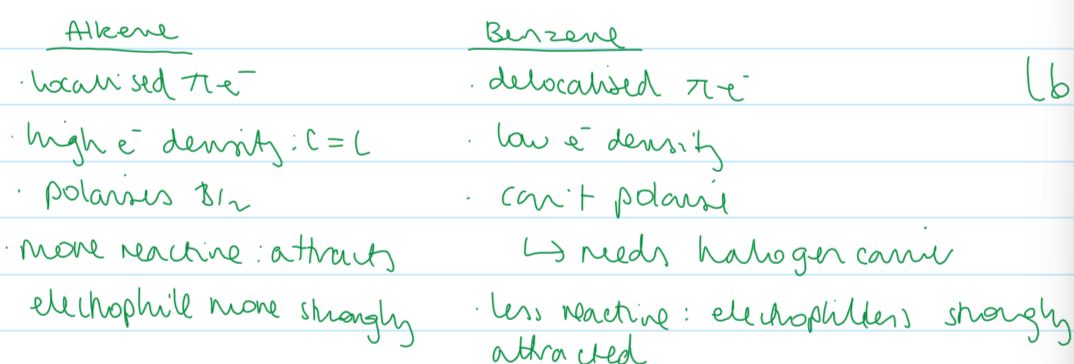 Alkene Benzene
· localised πe⁻ · delocalised πe⁻ (b
· high e⁻ density : C = C · low e⁻ density
· polarises Br₂ · can't polarise
· more reactive : attracts ↳ needs halogen carrier
electrophile more strongly · less reactive : electrophile less strongly
attracted